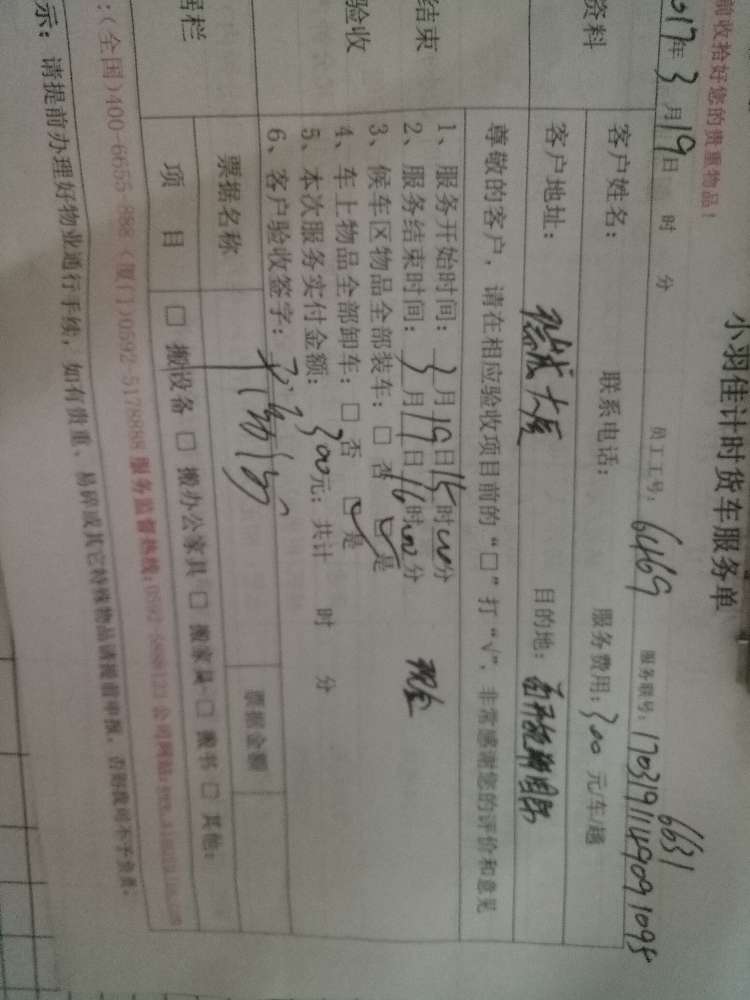 小羽佳计时货车服务单
前收拾好您的贵重物品！
2017年3月19日 时 分 员工工号：6469 服务联号：1703191149091098
6631
资料 客户姓名： 联系电话： 服务费用：300元/车/趟
客户地址： 大厦 目的地：
尊敬的客户，请在相应验收项目前的“□”打“√”，非常感谢您的评价和意见
结束
验收
1、服务开始时间：3月19日15时00分
2、服务结束时间：3月19日16时00分 现金
3、候车区物品全部装车：□ 否 ☑是
4、车上物品全部卸车：□ 否 ☑是
5、本次服务实付金额：300元；共计 时 分
6、客户验收签字：
票据名称 票据金额
栏
项 目 □ 搬设备 □ 搬办公家具 □ 搬家具 □ 搬书 □ 其他：
：(全国)400-6655-888 (厦门)0592-5178888 服务监督热线：0592-5888123 公司网站：
示：请提前办理好物业通行手续，如有贵重、易碎或其它特殊物品请提前申报，否则我司不予负责。